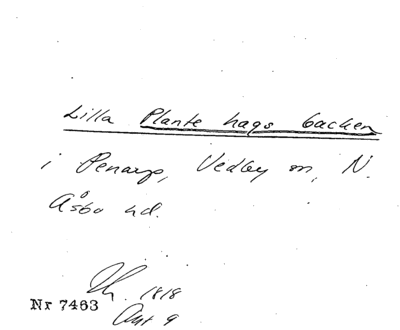 Lilla Plante hags backen
i Penarp, Vedby sn, N.
Åsbo hd.
1818
Nr 7463
Akt 9